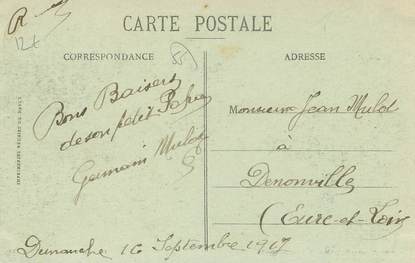 R
124
CARTE POSTALE
CORRESPONDANCE
ADRESSE
Bons Baisers
de son petit Papa
Germain Mulot
Monsieur Jean Mulot
à
Denonville
(Eure-et-Loir
Dimanche 16 Septembre 1917